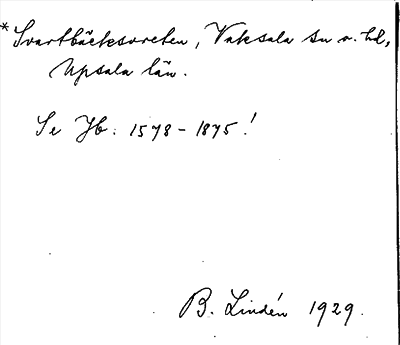 *Svartbäcksvreten, Vaksala sn o. hd,
Upsala län.
Se Jb. 1578-1875!
B. Lindén 1929.